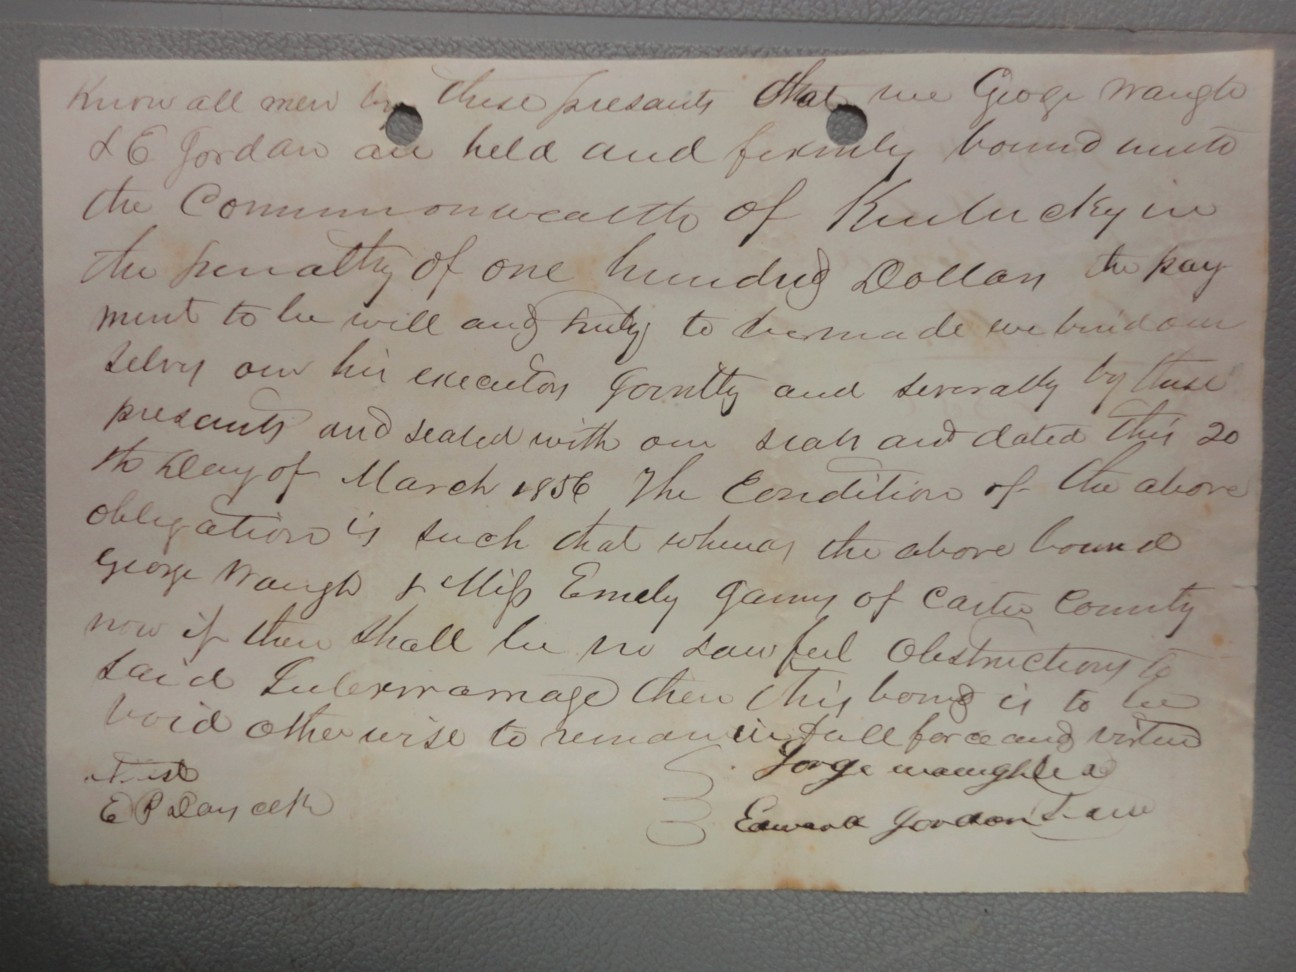 Know all men by these presants that we George Waugh
& E Jordan are held and firmly bound unto
the Commonwealth of Kentucky in
the penalty of one hundred Dollars the pay
ment to be will and truly to be made we bind our
selvs our hir executors Jointly and severally by these
presants and sealed with our seals and dated this 20
th Day of March 1856 The Condition of the above
obligation is such that whereas the above bound
George Waugh & Miss Emely of Carter County
now if there shall be no lawful Obstructions to
said Intermarriage then this bond is to be
void otherwise to remain in full force and virtue
Jorge
Test
E P Day clk
Edward Jordan